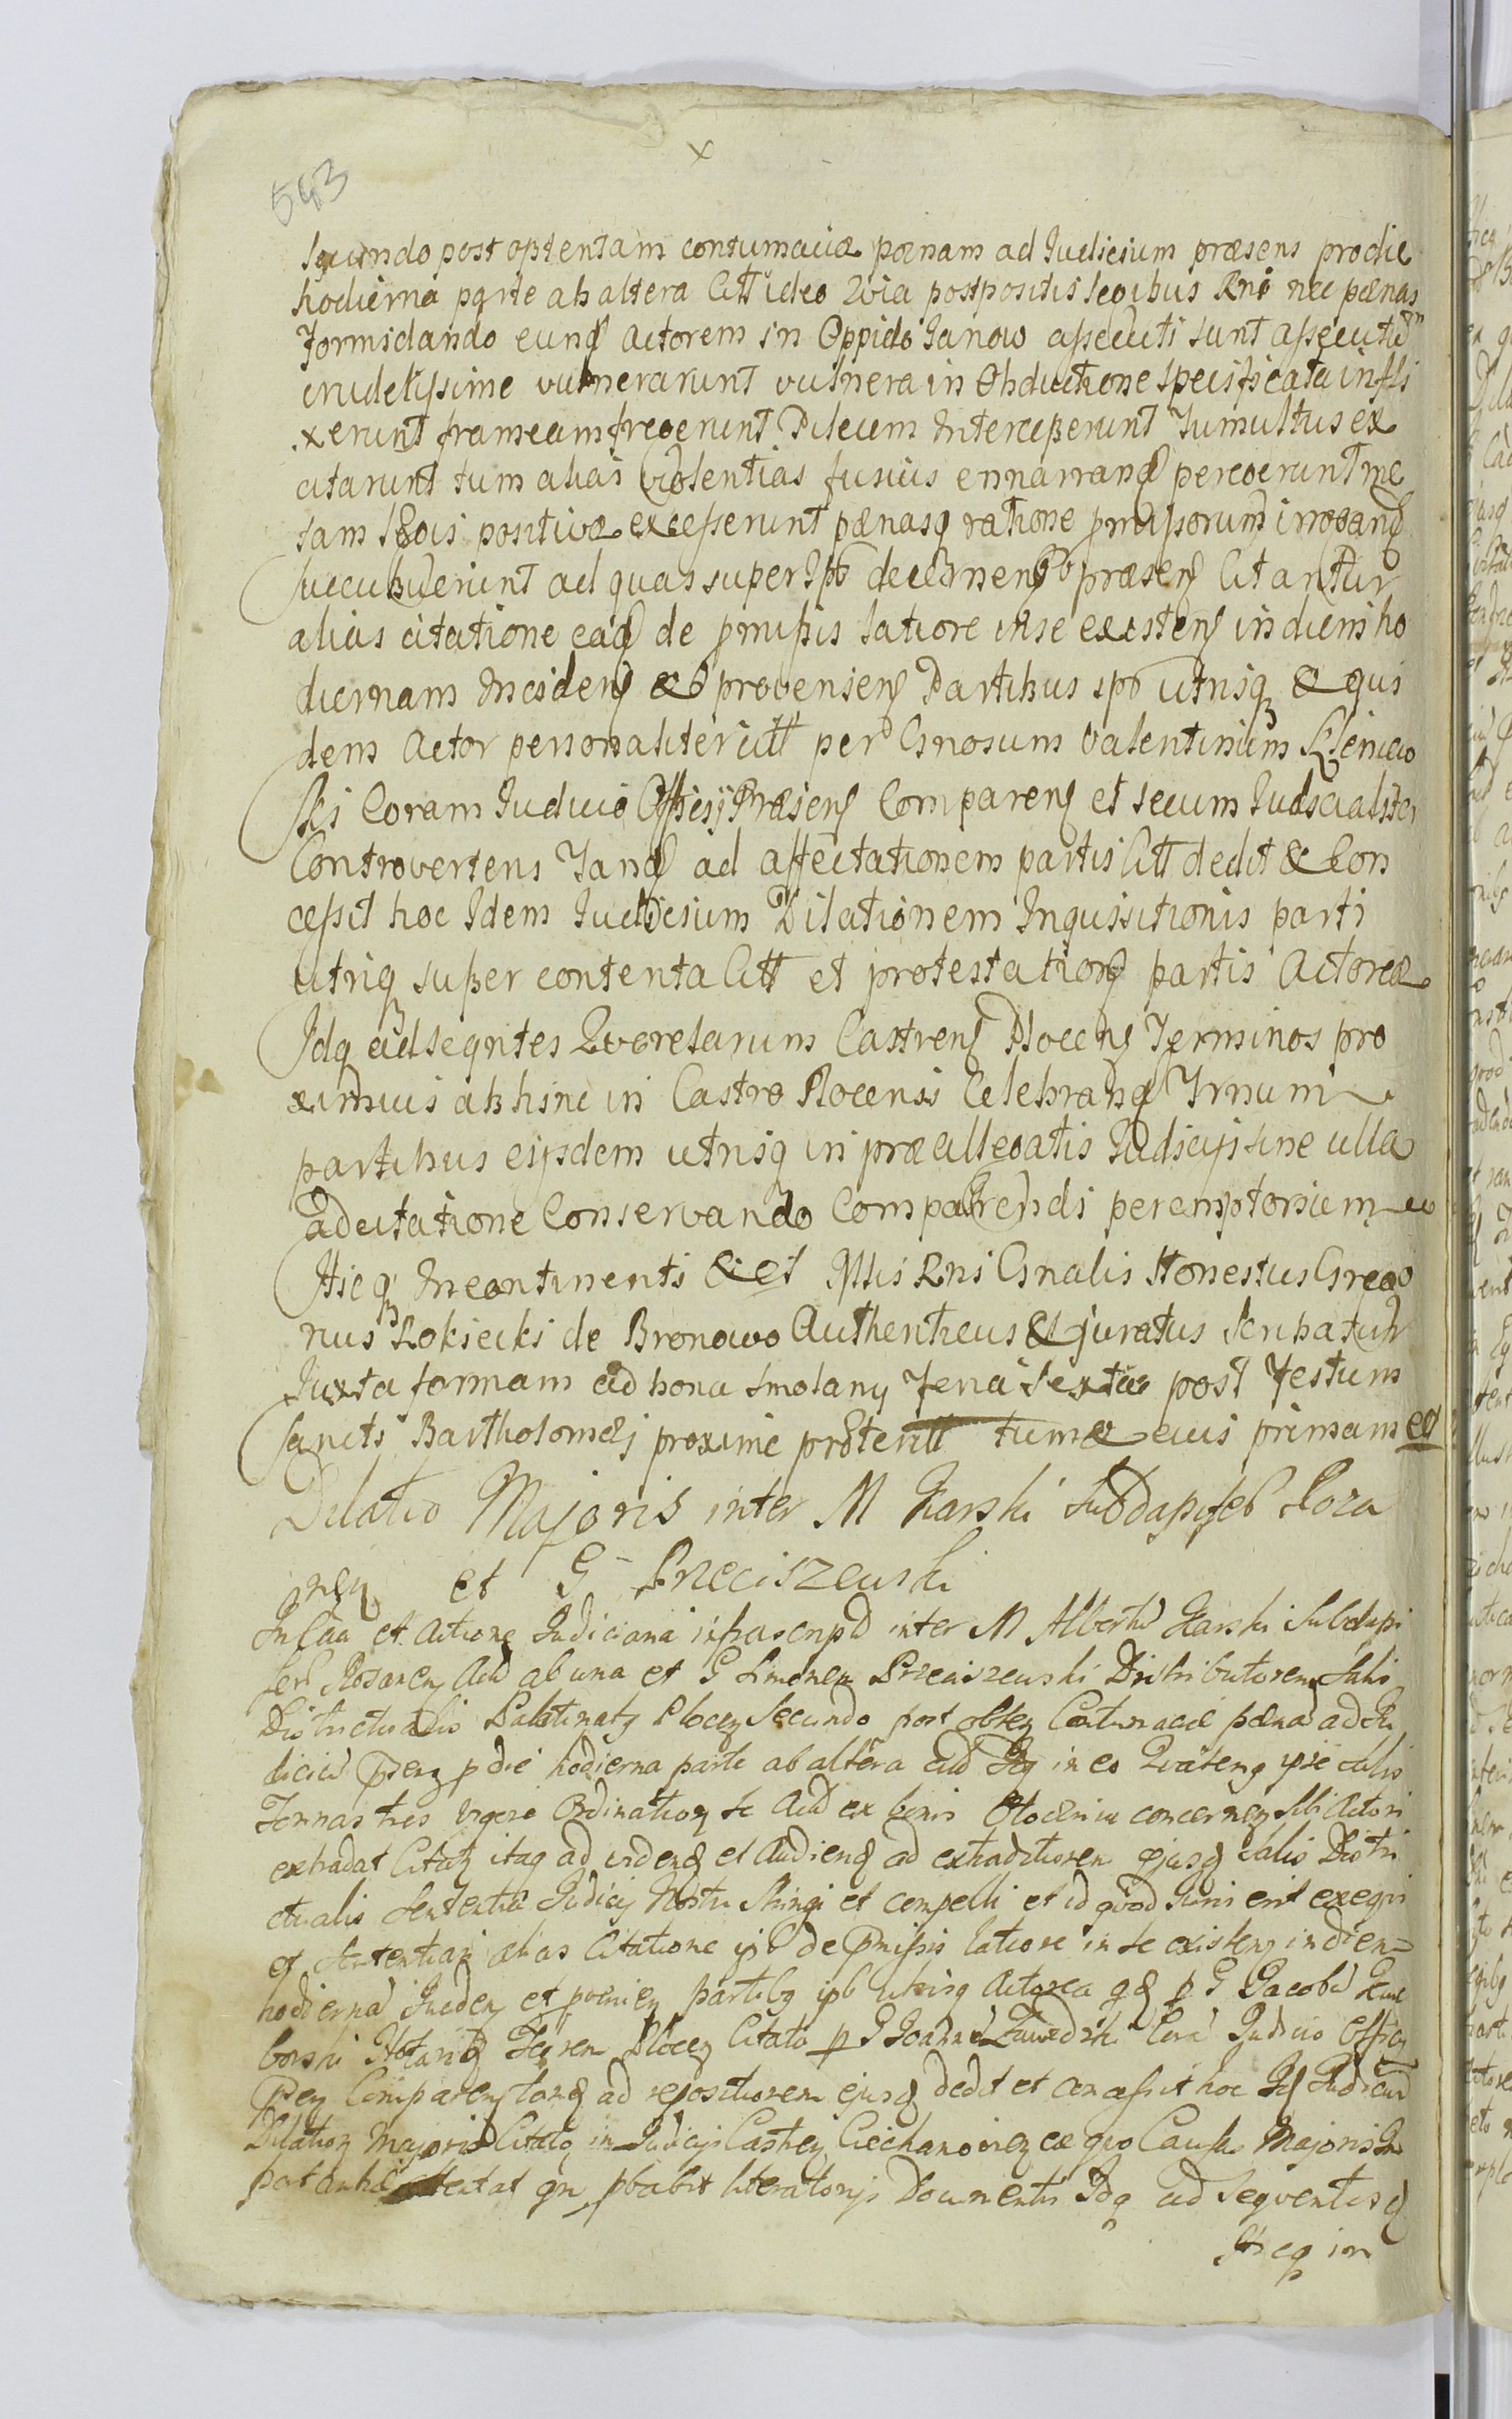 x
543
secundo post optentam contumaciæ pœnam ad Judicium præsens prodie
hodierna parte ab altera Citt ideo Quia postpositis legibus Rni nec pœnas
formidando eund Actorem in Oppido Janow assecuti sunt assecutũ
crudelissime vulnerarunt vulnera in Obductione specificata infli
xerunt frameam fregerunt Pileum Interceperunt Tumultus ex
citarunt tum alias violentias fusius ennarrand peregerunt me
tam legis positivæ excesserunt pænasq ratione præmissorum irrogand
succubuerunt ad quas super Ipõ decernend præsen Citantur
alias citatione ead de præmissis latiore in se existen in diem ho
diernam Inciden & provenien Partibus ipõ utrisq & qui
dem Actor personaliter citt per Gnosum Valentinum
ski Coram Judicio Officij Præsen Comparen et secum Judicialiter
Controvertens Tand ad affectationem partis Citt dedit & Con
cessit hoc Idem Judicium Dilationem Inquisitionis parti
utriq super contenta Citt et protestation partis Actoreæ
Idq ad seqntes Querelarum Castren Plocen Terminos pro
ximius abhinc in Castro Plocensi Celebrand Trnum
partibus eijsdem utrisq in præallegatis Judicijs sine ulla
adcitatione Conservando Comparendi peremptorium
Hicq Incontinenti & et Mttis Rni Gnalis Honestus Grego
rius Rokicki de Bronowo Authenticus & juratus scribatur
Juxta formam ad bona Smolany feria sexta post festum
Sancti Bartholomæj proxime præteritt tumæ eius primam
Dilatio Majoris inter M Karski Subdapifeb Roza
nen et G Przeciszewski
In Caa et Actione Judiciaria infrascripd inter M Albertũ Karski Subdapi
ferũ Rosanen Actt ab una et G Simonem Przeciszewski Distributorem Salis
Districtualis Palatinatq Plocen Secundo post obten Contumaciæ pænam ad Ju
diciũ præn p die hodierna parte ab altera Citt in eo Quateng ipse Salis
Tonnas tres vigore Ordination Se Actt ex bonis concernen sibi Actori
extradat Citatq itaq ad viden et Audiend ad extraditionem ejusd Salis Distri
ctualis Sententiã Judicij Nostri Stringi et compelli et id quod Juris erit exequi
et Sententiari alias Citatione ipõ de præmissis latiore in se existen in diem
hodiernã Inciden et provenien partibq ipõ utrisq Actorea qd p G Jacobũ
borski Notariũ Terren Plocen Citata p G Joannẽ Zawidzki Corã Judicio Officij
Præn Comparen tand ad repositionem ejusd dedit et concessit hoc Id Judiciũ
Dilation Majoris Citatq in Judicijs Castren Ciechanovien ex quo Causas Majoris Im
portantiæ attentat qm pbabit literatorijs Documentis Idq ad Sequentes
Hicq in